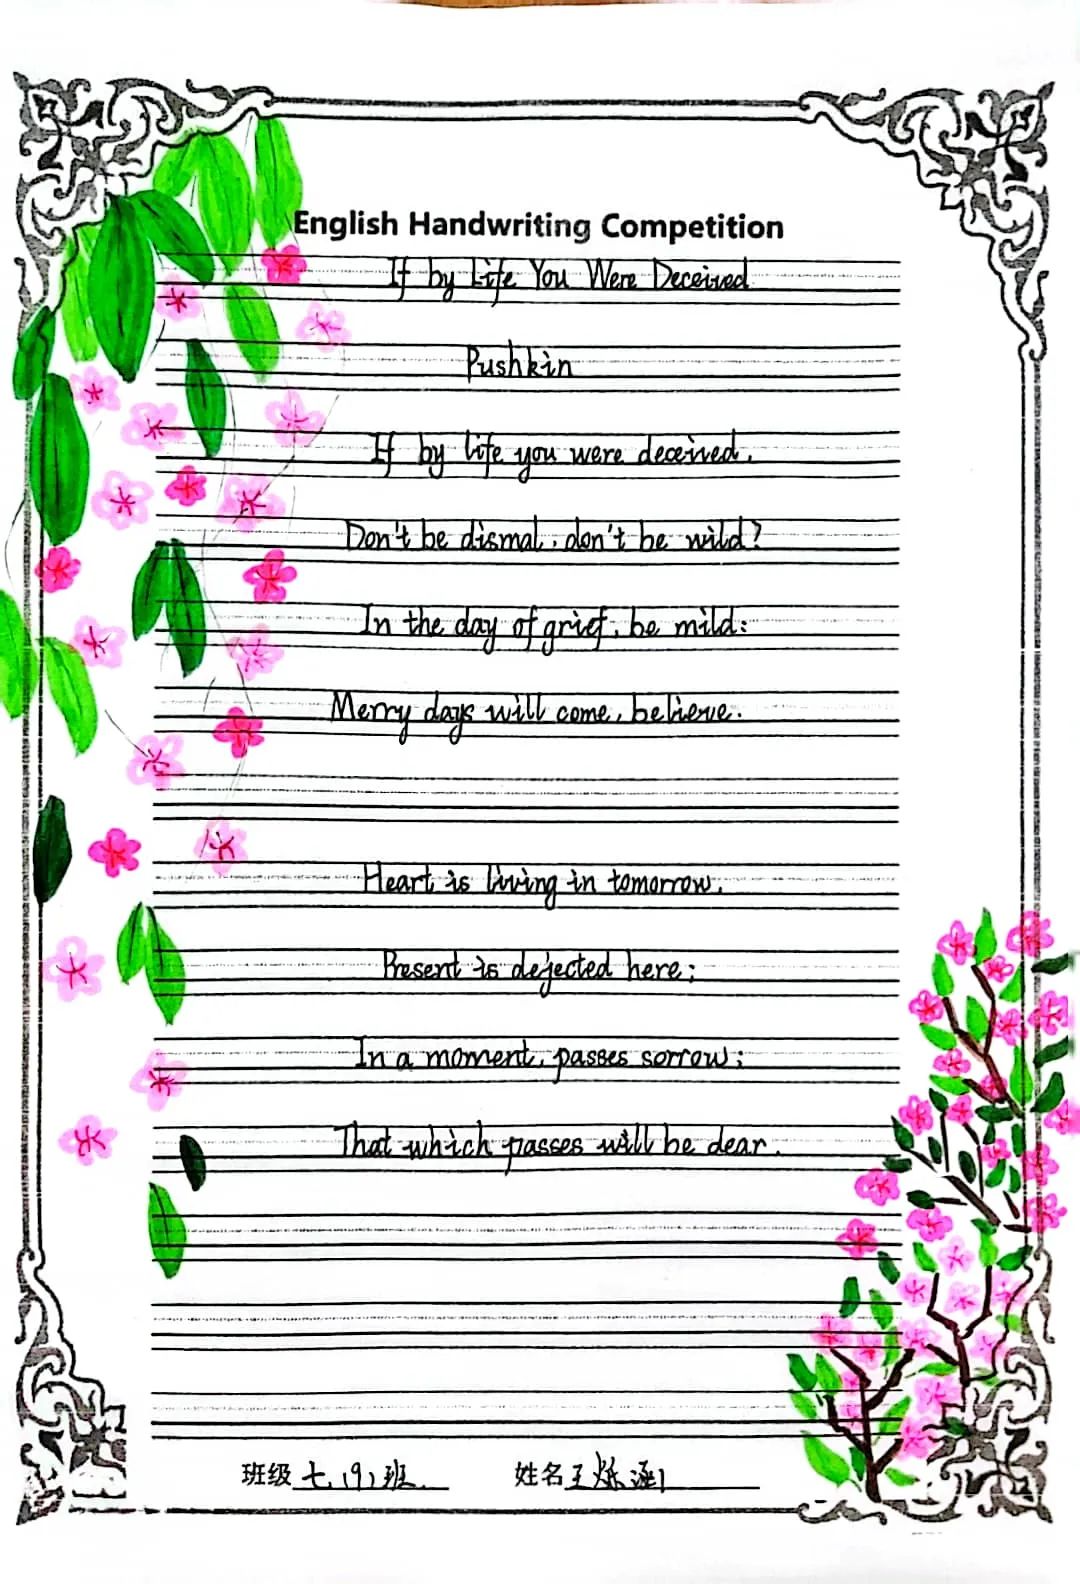 English Handwriting Competition
If by Life You Were Deceived
Pushkin
If by life you were deceived.
Don't be dismal, don't be wild?
In the day of grief, be mild:
Merry days will come, believe.
Heart is living in tomorrow.
Present is dejected here;
In a moment, passes sorrow;
That which passes will be dear.
班级 七(9)班 姓名 王烁涵